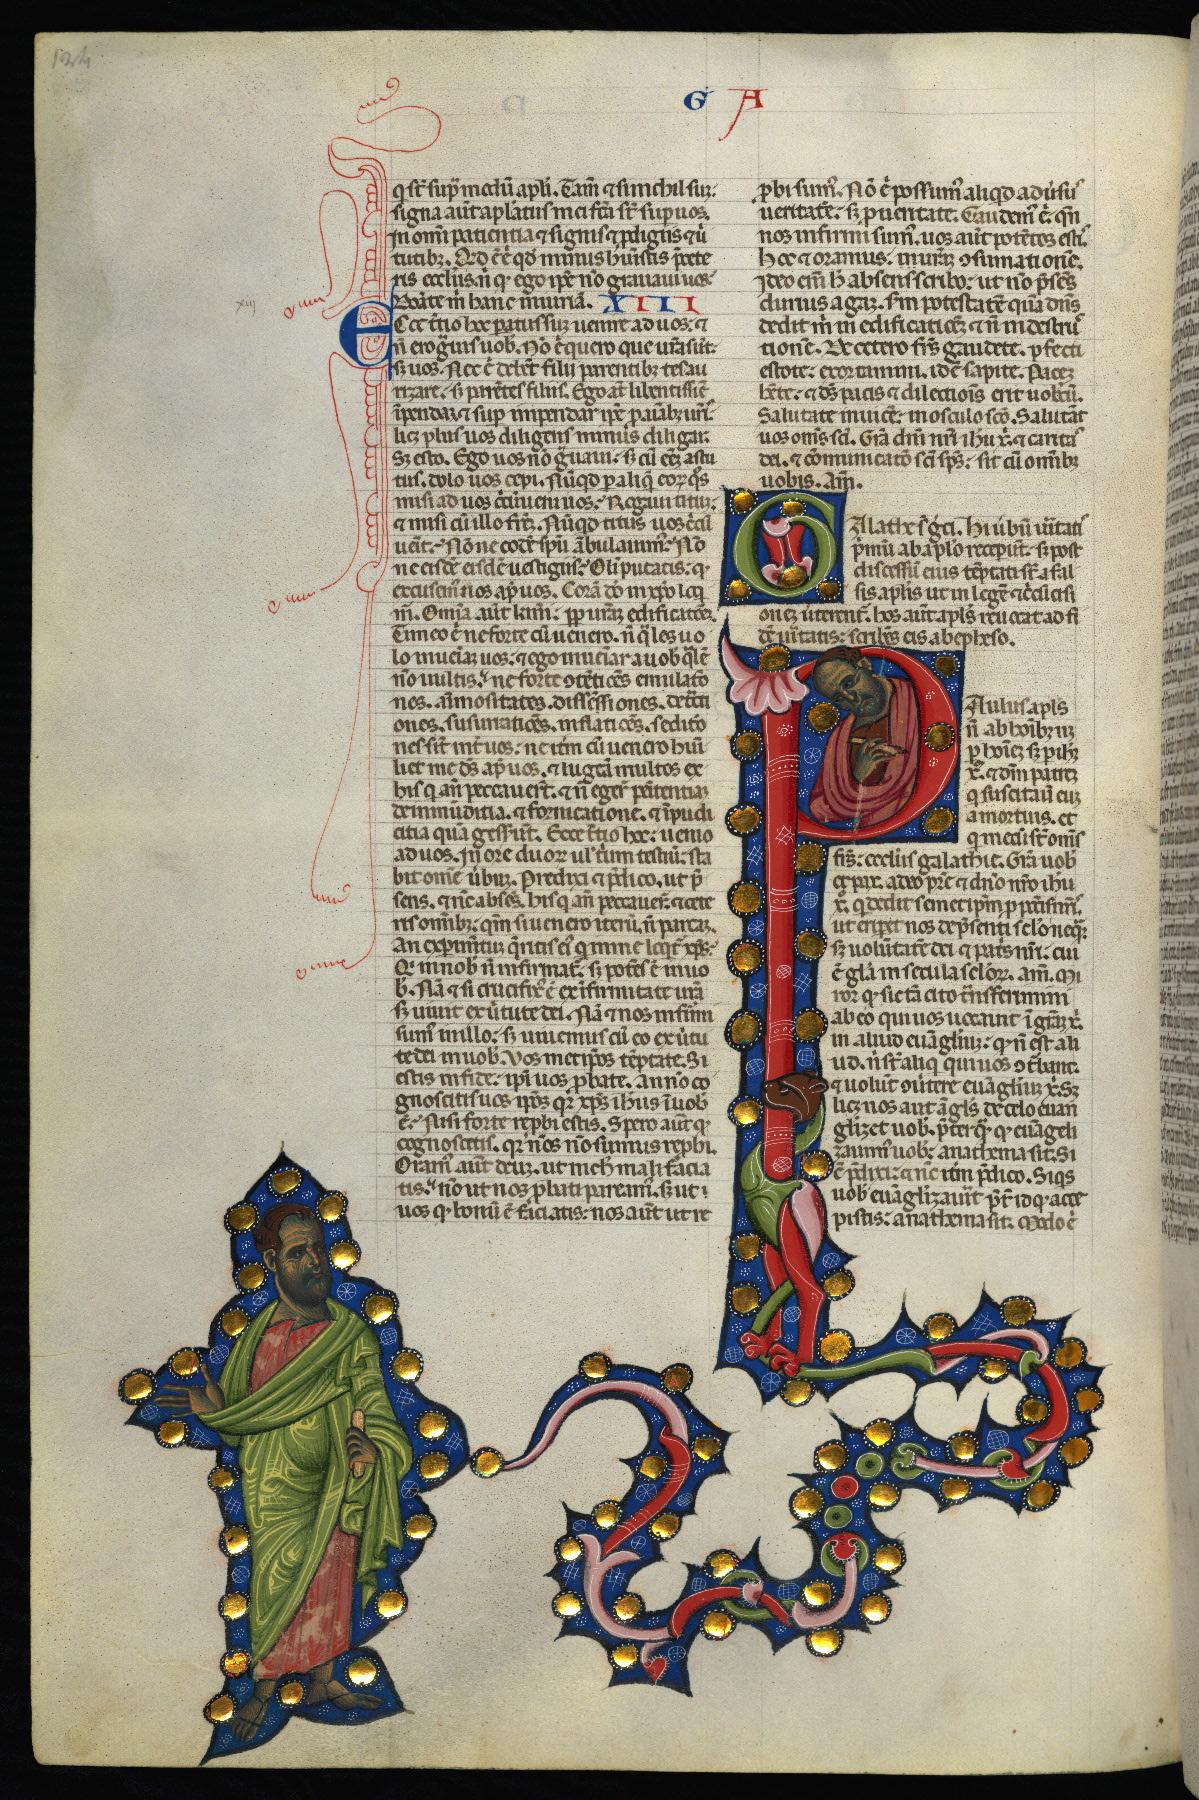 G A
q̄ st̄ sup̄ modū apl̄i. Tam̄ & si nichil suȝ:
signa aūt apl̄atus mei fc̄a st̄ sup̄ uos,
in omī patientia & signis & p̄digiis & ū
tutibȝ. Qd̄ ē ē qd̄ minus hūistis p̄ cete
ris eccl̄iis: n̄ q̄ ego ip̄e nō grauaui uos:
Donate m̄ hanc iniuriā. XIII
Ecce t̄tio hoc paratus suȝ uenire ad uos: &
n̄ ero ḡuis uob̄. Nō ē quero que ur̄a sūt:
sȝ uos. Nec ē debēt filii parentibȝ tesau
rizare: sȝ parētes filiis. Ego aūt libentissīe
īpendaȝ & sup̄ impendar ip̄e p̄ aīabȝ ur̄is
licȝ plus uos diligens minus diligar.
Sȝ esto. Ego uos nō ḡuaui: sȝ cū eēȝ astu
tus, dolo uos cepi. Nūqd̄ p̄ aliquē eoꝝ q̄s
misi ad uos c̄cūueni uos: Rogaui titū:
& misi cū illo fr̄eȝ. Nūqd̄ titus uos c̄cū
uēit: Nōne eodē sp̄u ābulauim̄: Nō
ne eisdē eisdē uestigiis: Olī putatis: q̄
excusem̄ nos ap̄ uos. Corā dō in xp̄o loq̄
m̄. Omīa aūt kīmi. pp̄ ur̄aȝ edificatōeȝ.
Timeo ē ne forte cū uenero, n̄ q̄les uo
lo inueniaȝ uos: & ego inueniar a uob̄ q̄lē
nō uultis: ne forte ↄtētiōes emulatō
nes, aīmositates, dissēsiones, detc̄ti
ones, susurratiōes, inflatiōes, seditō
nes sīt int̄ uos: ne itm̄ cū uenero hūi
liet me ds̄ ap̄ uos, & lugeā multos ex
his q̄ añ peccauer̄t, & n̄ eger̄ penitentiaȝ
de immūditia, & fornicatione, & īpudi
citia quā gesser̄ūt. Ecce t̄tio hoc: uenio
ad uos. In ore duoꝝ ul̄ t̄ium testiū: sta
bit om̄e ūbuȝ. Predixi & p̄dico, ut p̄
sens, & nc̄ absēs, his q̄ añ peccauer̄: & cete
ris omībȝ: qm̄ si uenero iterū, n̄ parcaȝ.
An experim̄tū q̄ritis ei̇ q̄ in me loq̄t̄ xp̄s:
Q̄ in uob̄ n̄ infirmat̄: sȝ potēs ē in uo
b̄. Nā & si crucifix̄ ē ex īfirmitate nr̄a
sȝ uiuit ex ūtute dei. Nā & nos infirmi
sum̄ in illo: sȝ uiuemus cū eo ex ūtu
te dei in uob̄. Vos metip̄os tēptate. Si
estis in fide: ip̄i uos p̄bate. an nō co
gnoscitis uos ip̄os q̄r xp̄s ihus ī uob̄
ē: Nisi forte rep̄bi estis. Spero aūt q̄
cognoscetis, q̄r nos nō sumus rep̄bi.
Oram̄ aūt deuȝ, ut nich̄ mali facia
tis: nō ut nos p̄bati paream̄: sȝ ut
uos q̄ bonū ē faciatis: nos aūt ut re
p̄bi sum̄. Nō ē possum̄ aliqd̄ adūsus
ueritatē: sȝ p̄ ueritate. Gaudem̄ ē. qn̄
nos infirmi sum̄, uos aūt potētes estis.
Hoc & oramus. ur̄aȝ ↄsumationē.
Ideo eīm h̄ absens scribo: ut nō p̄ses
durius agaȝ. sm̄ potestatē quā dn̄s
dedit m̄ in edificatiōeȝ & n̄ in destruc
tionē. De cetero frs̄ gaudete. p̄fecti
estote: exortamini. idē sapite. Pacez
h̄ete: & ds̄ pacis & dilectiōis erit uobcū.
Salutate inuicē: in osculo sc̄o. Salutāt
uos om̄s sc̄i. Gr̄a dn̄i nr̄i ihu x̄. & caritas
dei. & cōmunicatō sc̄i sp̄s: sit cū omībȝ
uobis. Am̄.
Galathe s̄ ḡci. Hi ūbū uītatis
p̄mū ab ap̄lo receper̄ūt: sȝ post
discessū eius tēptati st̄ a fal
sis aplis ut in legē & c̄cūcisi
onēȝ ūterent̄. hos aūt apl̄s reuocat ad fi
dē uītatis: scribēs eis ab epheso.
Paulus apl̄s
n̄ ab hoībȝ nȝ
p̄ hoīeȝ sȝ p̄ ihȝ
x̄. & dm̄ patrēȝ
q̄ suscitauit euȝ
a mortuis. et
q̄ mecū st̄ om̄s
frs̄: eccl̄iis galathie. Gr̄a uob̄
& pax. a deo pr̄e & dn̄o nr̄o ihu
x̄. q̄ dedit semetip̄m p̄ pcc̄is nr̄is,
ut erip̄et nos de p̄senti sc̄lo neq̄ȝ
sȝ uolūtatē dei & pat̄s nr̄i. cui
ē gl̄a in secula sc̄loꝝ. am̄. Mi
ror q̄ sic tā cito t̄nsferimini
ab eo qui uos uocauit ī gr̄aȝ x̄.
in aliud euāgliuȝ: q̄ n̄ est ali
ud. n̄ st̄ aliq̄ qui uos ↄt̄bant:
& uolūt ↄūtere euāgliuȝ x̄. Sȝ
licȝ nos aut āgl̄s de celo euan
glizet uob̄. p̄terq̄ q̄ euāgeli
zauim̄ uob̄: anathema sit. Si
c̄ p̄dixi: & nc̄ itm̄ p̄dico. Siq̄s
uob̄ euāglizauīt p̄t̄ id q̄ acce
pistis: anathema sit. Modo ē